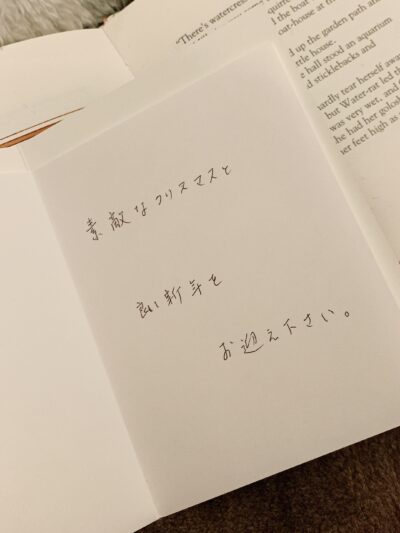 "There's watercress
the boat
oat-house at th
d up the garden path and
ttle house.
e hall stood an aquarium
d sticklebacks and
ardly tear herself away
but Water-rat led th
was very wet, and
he had her golosh
er feet high as
素敵なクリスマスと
良い新年を
お迎え下さい。